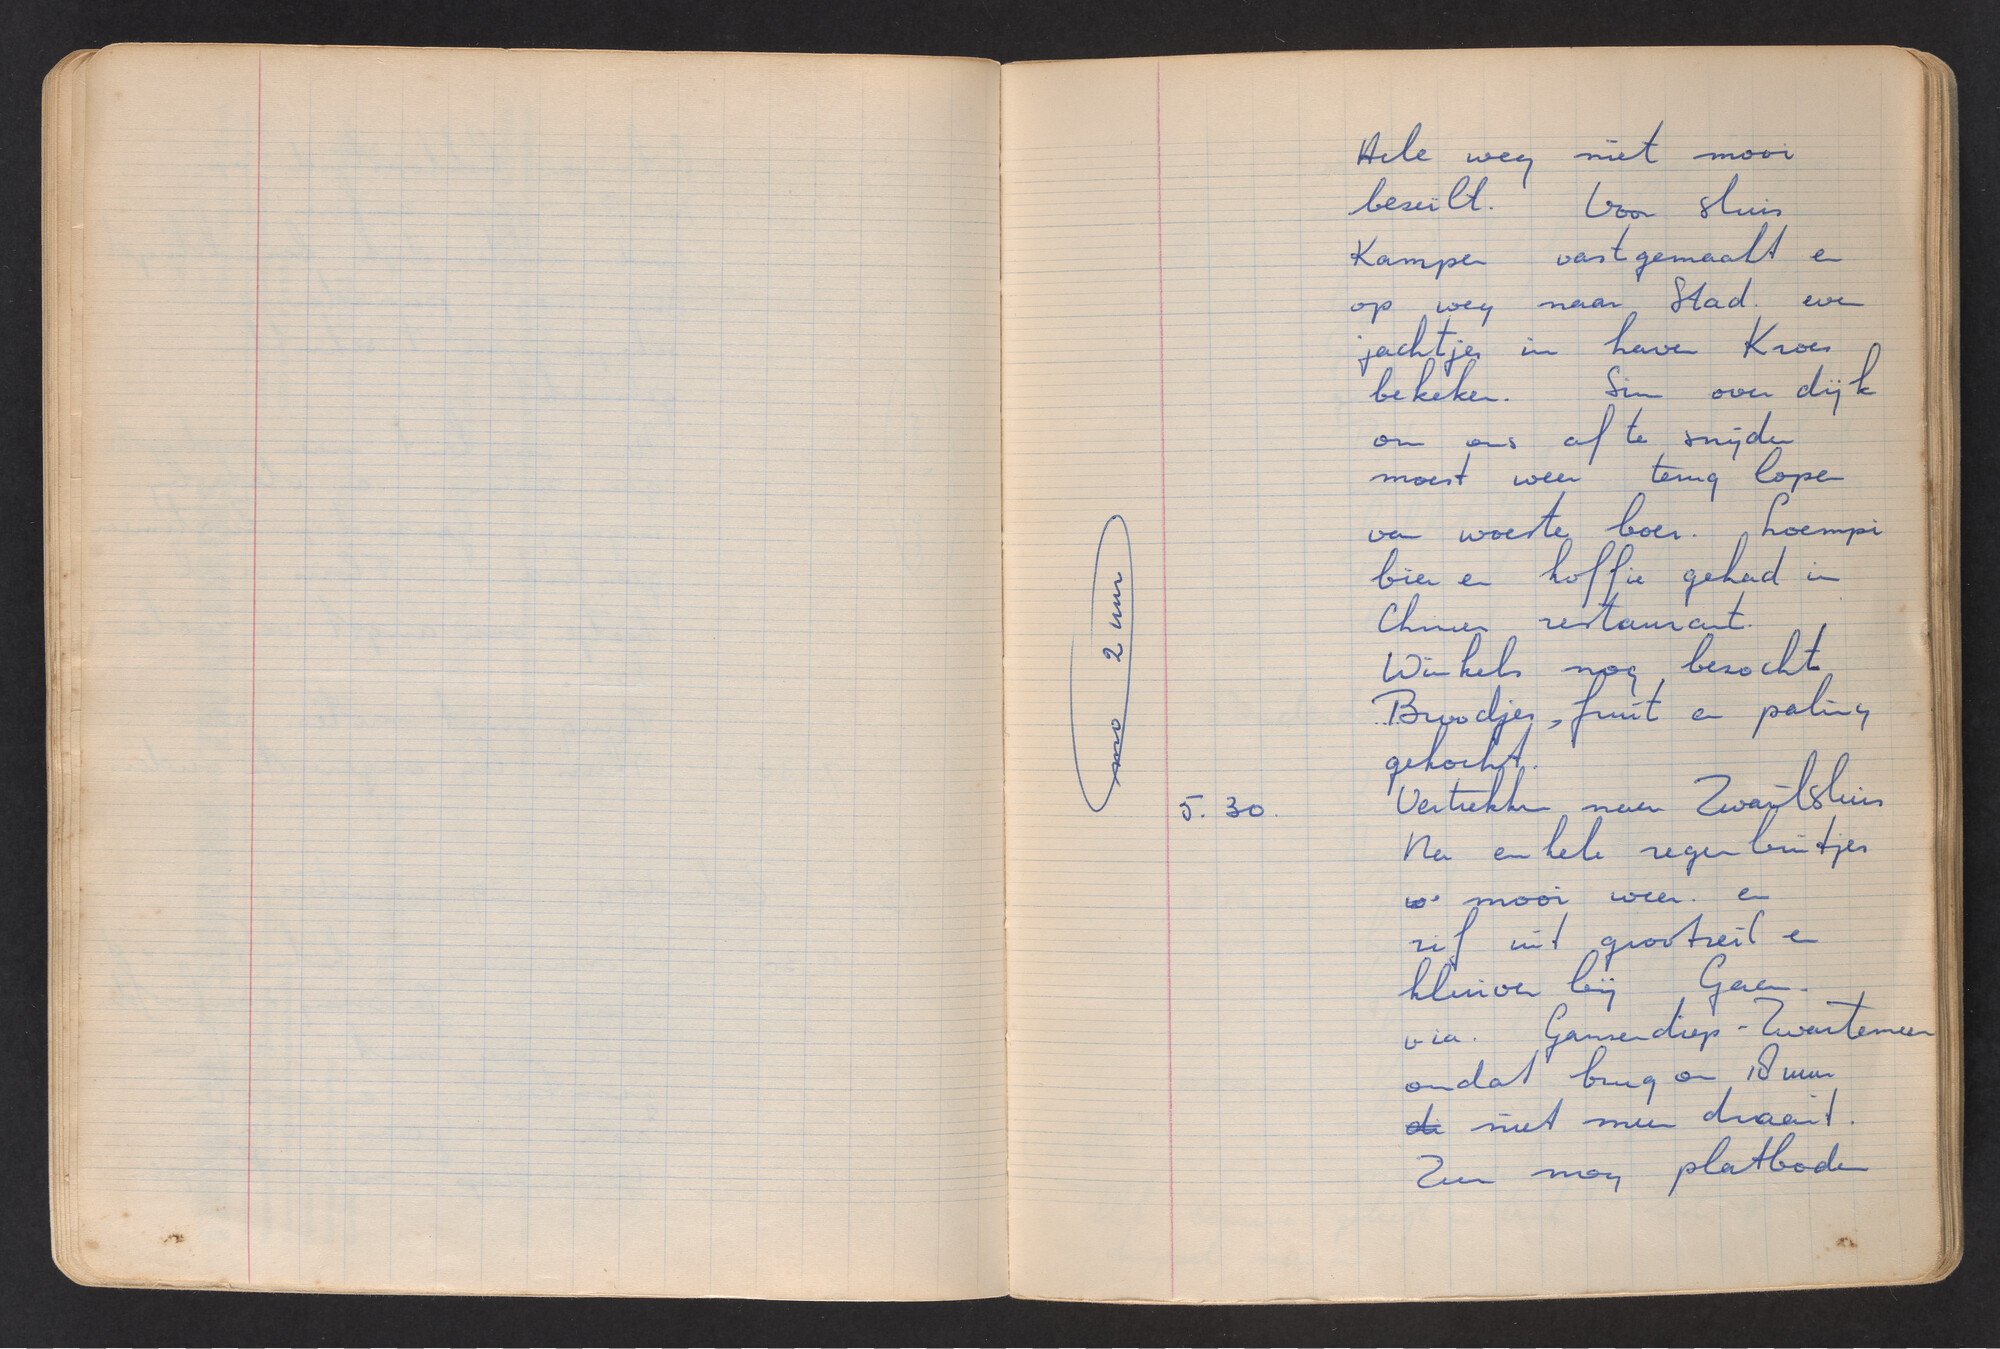 Hele weg niet mooi
bezeilt. Voor sluis
Kampen vastgemaakt en
op weg naar Stad. even
jachtjes in haven Kroes
bekeken. Sim over dijk
om ons af te snijden
moest weer terug lopen
van woeste boer. Loempi
bier en koffie gehad in
Chinees restaurant.
Winkels nog bezocht
Broodjes, fruit en paling
gekocht.
mo 2 uur
5.30. Vertrekken naar Zwartsluis
Na enkele regenbuitjes
mooi weer. en
rif uit grootzeil en
kluiver bij Gaan.
via. Ganzendiep - Zwartemeer
omdat brug om 18 uur
niet meer draait.
Zien nog platboden